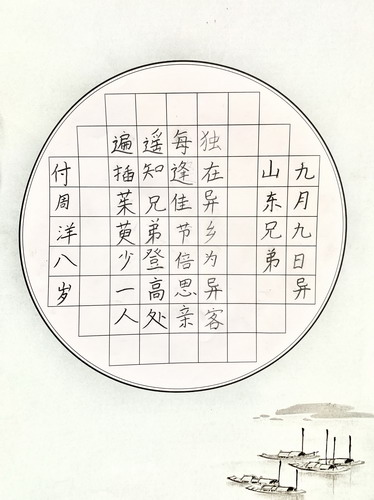 九月九日异
山东兄弟
独在异乡为异客
每逢佳节倍思亲
遥知兄弟登高处
遍插茱萸少一人
付周洋八岁